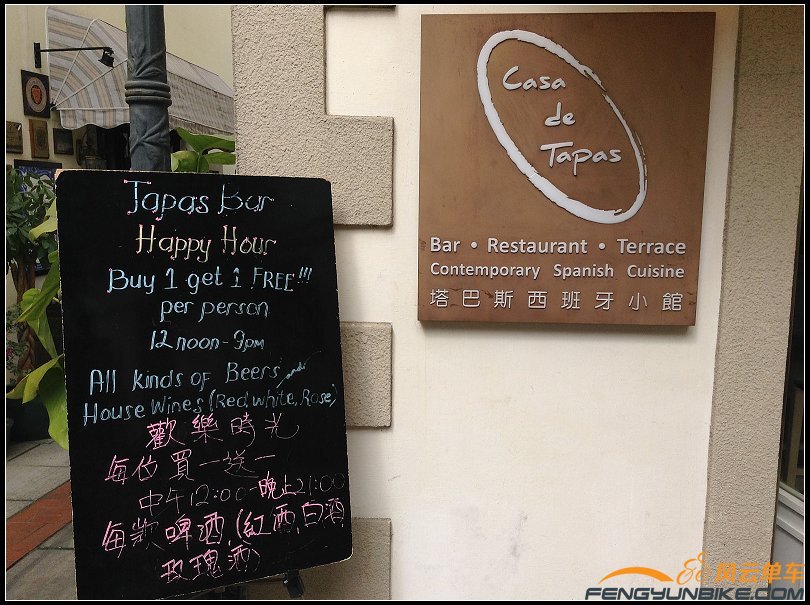 Tapas Bar
Happy Hour
Buy 1 get 1 FREE!!!
per person
12 noon - 9pm
All kinds of Beers and
House Wines (Red, white, Rose)
歡樂時光
每位買一送一
中午12:00-晚上21:00
每款啤酒,(紅酒,白酒
玫瑰酒)
Casa
de
Tapas
Bar • Restaurant • Terrace
Contemporary Spanish Cuisine
塔巴斯西班牙小館
风云单车
FENGYUNBIKE.COM